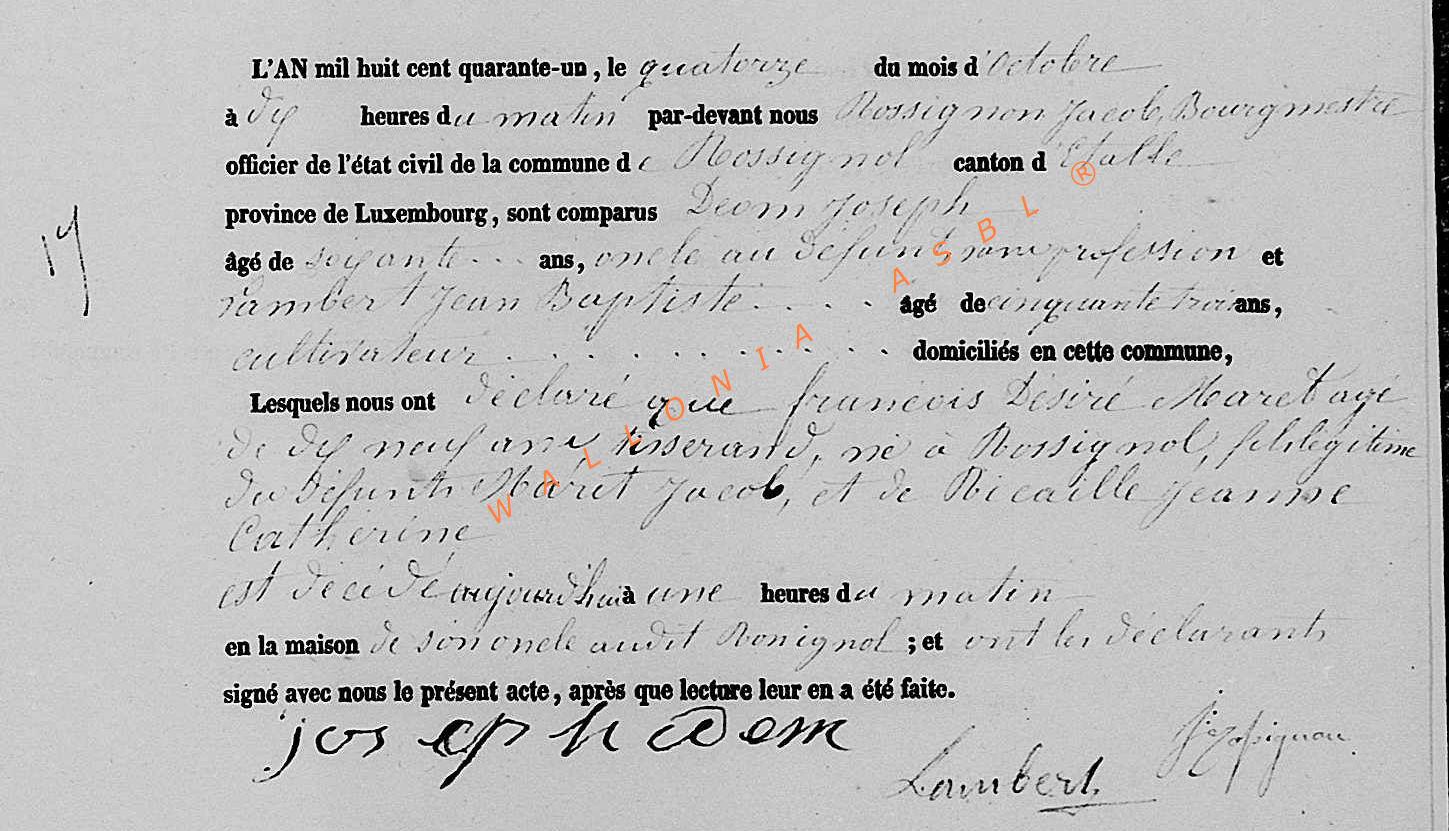 L'AN mil huit cent quarante-un, le quatorze du mois d'Octobre
à dix heures du matin par-devant nous Rossignon Jacob, Bourgmestre
officier de l'état civil de la commune de Rossignol canton d'Etalle
province de Luxembourg, sont comparus Deom Joseph
âgé de soixante ans, oncle au défunt, sans profession et
Lambert Jean Baptiste âgé de cinquante trois ans,
cultivateur domiciliés en cette commune,
17
Lesquels nous ont déclaré que francois Désiré Maret agé
de dix neuf ans, tisserand, né à Rossignol, fils légitime
des défunts Maret Jacob, et de Ricaille Jeanne
Catherine
est décidé aujourd'hui à une heures du matin
en la maison de son oncle audit Rossignol ; et ont les déclarants
signé avec nous le présent acte, après que lecture leur en a été faite.
joseph deom
Lambert
WALLONIA ASBL ®